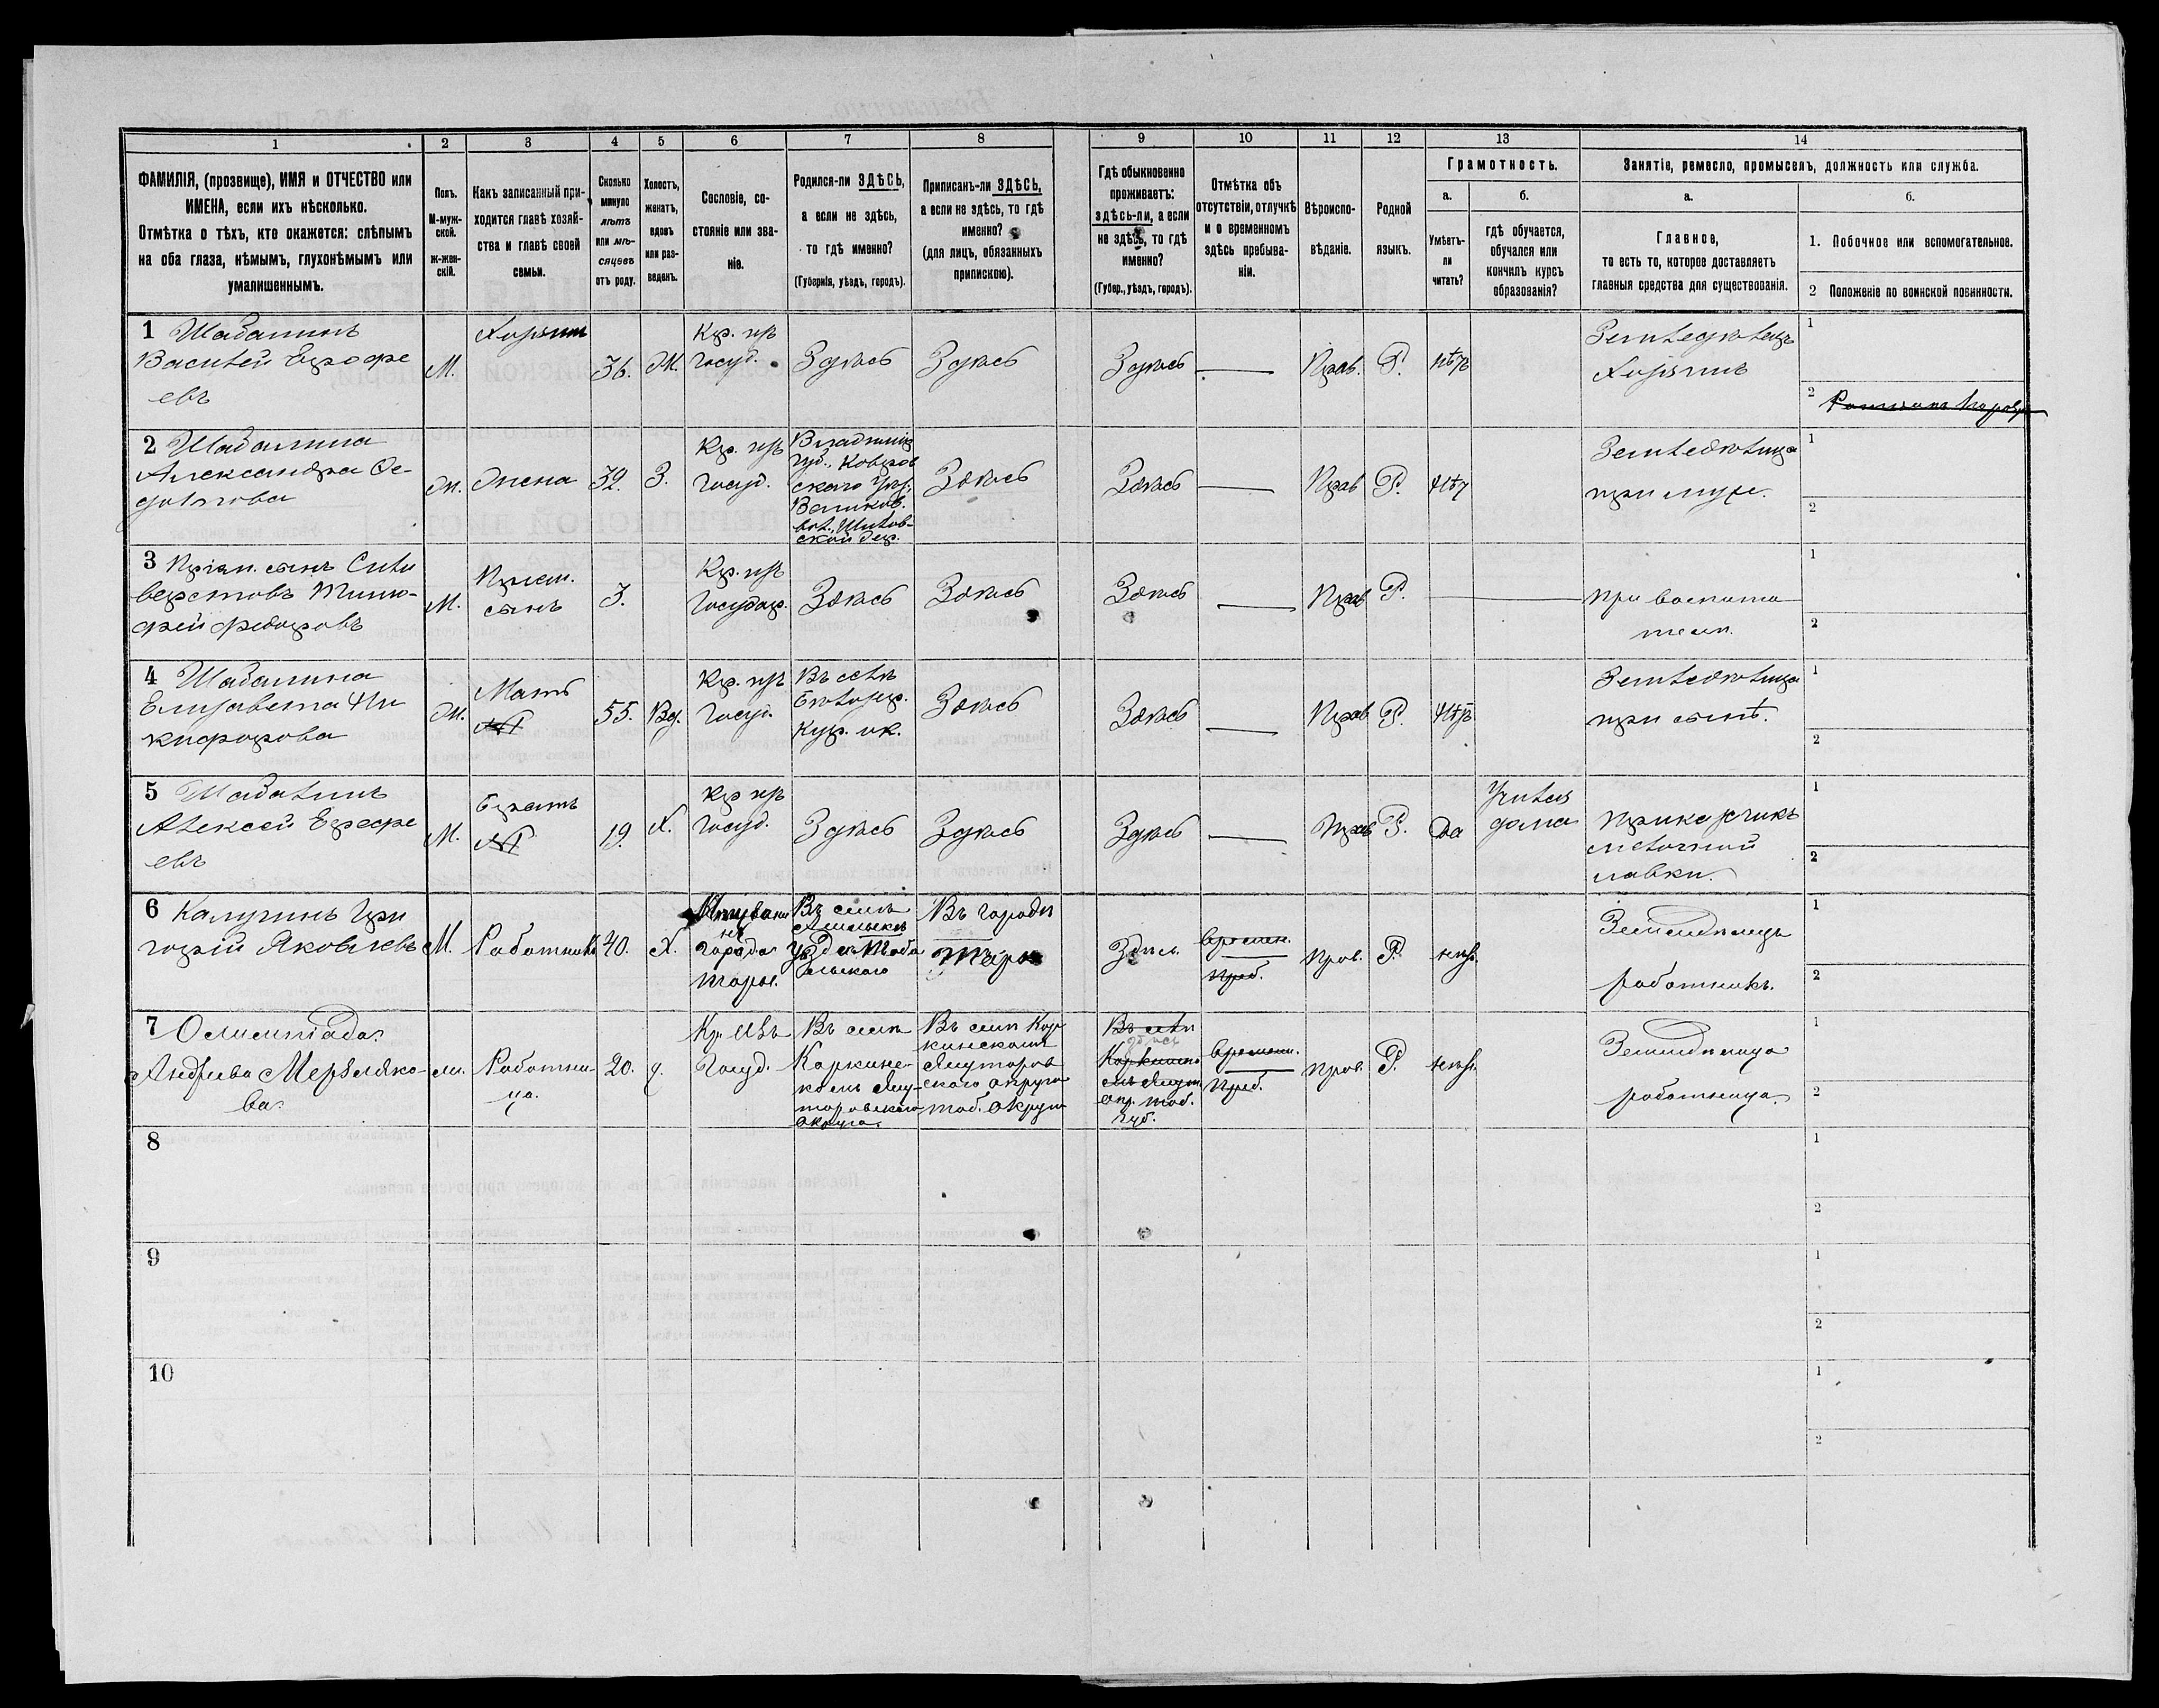 1 2 3 4 5 6 7 8 9 10 11 12 13 14
ФАМИЛІЯ, (прозвище), ИМЯ и ОТЧЕСТВО или
ИМЕНА, если ихъ нѣсколько.
Отмѣтка о тѣхъ, кто окажется: слѣпымъ
на оба глаза, нѣмымъ, глухонѣмымъ или
умалишеннымъ.
Полъ.
М-муж-
ской.
Ж-жен-
скій.
Какъ записанный при-
ходится главѣ хозяй-
ства и главѣ своей
семьи.
Сколько
минуло
лѣтъ
или мѣ-
сяцевъ
отъ роду.
Холостъ,
женатъ,
вдовъ
или раз-
веденъ.
Сословіе, со-
стояніе или зва-
ніе.
Родился-ли ЗДѢСЬ,
а если не здѣсь,
то гдѣ именно?
(Губернія, уѣздъ, городъ).
Приписанъ-ли ЗДѢСЬ,
а если не здѣсь, то гдѣ
именно?
(для лицъ, обязанныхъ
припискою).
Гдѣ обыкновенно
проживаетъ:
здѣсь-ли, а если
не здѣсь, то гдѣ
именно?
(Губер., уѣздъ, городъ).
Отмѣтка объ
отсутствіи, отлучкѣ
и о временномъ
здѣсь пребыва-
ніи.
Вѣроиспо-
вѣданіе.
Родной
языкъ.
Грамотность.
а.
Умѣетъ-
ли
читать?
б.
гдѣ обучается,
обучался или
кончилъ курсъ
образованія?
Занятіе, ремесло, промыселъ, должность или служба.
а.
Главное,
то есть то, которое доставляетъ
главныя средства для существованія.
б.
1. Побочное или вспомогательное.
2 Положеніе по воинской повинности.
1 Шабалинъ
Василій Ерофе
евъ
М.
Хозяинъ
36.
Ж.
Кр. изъ
Госуд.
Здѣсь
Здѣсь
Здѣсь
Прав.
Р.
нѣтъ
Земледѣлецъ
Хозяинъ
1
2
2 Шабалина
Александра Фе-
дотова
Ж.
Жена
32.
З.
Кр. изъ
Госуд.
Владимір
губ., Ковров
скаго уѣз.
вол.,
ской дер.
Здѣсь
Здѣсь
Прав
Р.
Нѣт
Земледѣлица
при мужѣ.
1
2
3 Пріем. сынъ Сили
верстовъ Тимо-
фей Федоровъ
М.
Пріем.
сынъ
3.
Кр. изъ
Государ.
Здѣсь
Здѣсь
Здѣсь
Прав
Р.
при воспита
тели.
1
2
4 Шабалина
Елизавета Ни
кифорова
Ж.
Мать
55.
Вд.
Кр. изъ
Госуд.
Въ селѣ
Бѣлозер.
Кур. ок.
Здѣсь
Здѣсь
Прав
Р.
Нѣтъ
Земледѣлица
при сынѣ.
1
2
5 Шабалинъ
Алексей Ерофе
евъ
М.
Братъ
19.
Х.
Кр изъ
Госуд.
Здѣсь
Здѣсь
Здѣсь
Прав
Р.
Да
Учился
дома
Приказчикъ
мелочной
лавки.
1
2
6 Калугинъ Гри
горій Яковлевъ
М.
Работникъ
40.
Х.
изъ
города
Тары.
Въ селѣ
Въ городѣ
Тарѣ
Здѣсь.
времен.
преб.
прав.
Р.
нетъ.
Земледѣлецъ
работникъ.
1
2
7 Олимпіада
Андреева Мерзляко-
ва.
ж.
Работни-
ца.
20.
д.
Кр. изъ
Госуд.
Въ селѣ
Коркинс-
комъ Ялу-
торовскаго
округа
Въ селѣ Кор
кинскомъ
Ялуторов
скаго округа
Тоб.
Въ селѣ
здѣсь
окр. Тоб.
губ.
времен.
преб.
прав.
Р.
нетъ.
Земледѣлица
работница.
1
2
8
1
2
9
1
2
10
1
2